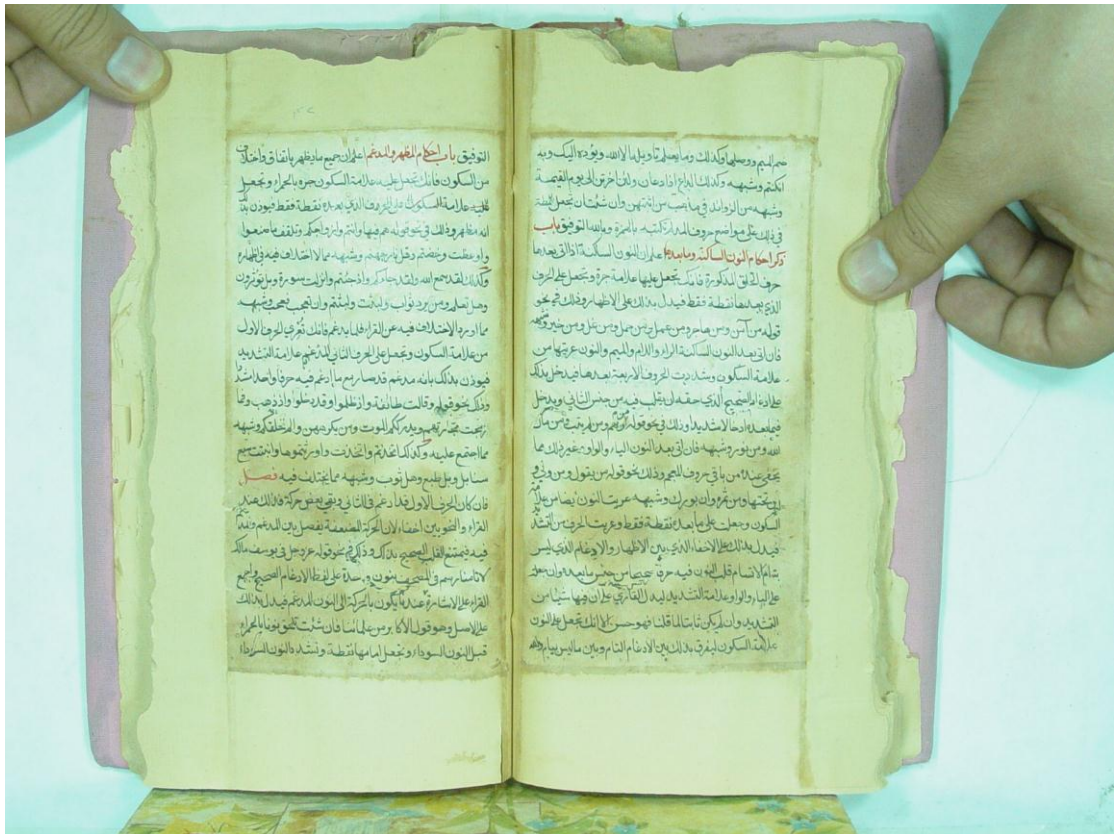 ضم الميم ووصلها وكذلك وما يعلم تاويله الا الله ويؤده اليك وبه
انكنتم وشبهه وكذلك الداع اذا دعان ولئن اخرتن الى يوم القيمة
وشبهه من الزوائد في مذهب من اثبتهن وان شئت ان تجعل المطة
في ذلك على مواضع حروف المد وتكتبه بالحمرة وبالله التوفيق باب
ذكر احكام النون الساكنة وما بعدها اعلم ان النون الساكنة اذا اتى بعدها
حرف الحلق المذكورة فانك تجعل عليها علامة جرة وتجعل على الحرف
الذي بعدها نقطة فقط فيدل بذلك على الاظهار وذلك في نحو
قوله من آمن ومن هاجر ومن عمل ومن حمل ومن غل ومن خير وشبهه
فان اتى بعد النون الساكنة الراء واللام والميم والنون عريتها من
علامة السكون وشددت الحروف الاربعة بعدها فيدخل بذلك
على ادغام الصحيح الذي حقه ان يقلب فيه من جنس الثاني ويدخل
فيما بعده ادخالا شديدا وذلك في نحو قوله من ربهم ومن لم يتب من مال
الله ومن نور وشبهه فان اتى بعد النون الياء والواو غير ذلك مما
يخفى عنده من باقي حروف المعجم وذلك نحو قوله من يقول ومن ولي و
من تحتها ومن ثمرة وان بورك وشبهه عريت النون ايضا من علامة
السكون وجعلت على ما بعده نقطة فقط وعريت الحرف من التشديد
فيدل بذلك على الاخفاء الذي بين الاظهار والادغام الذي ليس
بتام لانتسام قلب النون فيه حرفا صحيحا من جنس ما بعده وان جعلت
على الياء والواو علامة التشديد ليدل القارئ على ان فيها شيئا من
التشديد وان لم يكن ثابتا لما قلنا فهو حسن الا انك تجعل على النون
علامة السكون ليفرق بذلك بين الادغام التام وبين ما ليس بتام وبالله
التوفيق باب احكام المظهر والمدغم اعلم ان جميع ما يظهر باتفاق واختلاف
من السكون فانك تجعل عليه علامة السكون جره بالحمراء وتجعل
علامة السكون على الحروف الذي بعده نقطة فقط فيوذن بذلك
انه مظهر وذلك في نحو قوله هم فيها وانتم وازواجكم وتلقف ما صنعوا
واوعظت وخضتم وقل نعم وشبهه مما لا اختلاف فيه في اظهاره
وكذلك لقد سمع الله ولقد جاءكم واذ جئتم وانزلت سورة وبل تؤثرون
وهل تعلم ومن يرد ثواب ولبثت ولبثتم وان تعجب فعجب وشبهه
مما ورد الاختلاف فيه عن القراء فاما يدغم فانك تعري الحرف الاول
من علامة السكون وتجعل على الحرف الثاني المدغم علامة التشديد
فيوذن بذلك بانه مدغم قد صار مع ما ادغم فيه حرفا واحدا مشددا
وذلك نحو قوله وقالت طائفة واذ ظلموا وقد دخلوا واذ ذهب وفما
ربحت تجارتهم ويدرككم الموت ومن يكرههن والم نخلقكم وشبهه
مما اجتمع عليه وكذلك اتخذتم واتخذت واورثتموها وانبتت سبع
سنابل وبل طبع وهل ثوب وشبهه مما يختلف فيه فصل
فان كان الحرف الاول قد ادغم في الثاني وبقي بعض حركة فذلك عند
القراء والنحويين اخفاء لان الحركة المضعفة تفصل بين المدغم والمدغم
فيه فيمتنع القلب الصحيح بذلك وذلك في نحو قوله عز وجل في يوسف مالك
لا تامنا رسم في المصحف بنون واحدة على لفظ الادغام الصحيح واجمع
القراء على الاشارة عندنا يكون بالحركة الى النون المدغم فيدل بذلك
على الاصل وهو قول الاكابر من علمائنا فان شئت تلحق نونا بالحمراء
قبل النون السوداء وتجعل امامها نقطة وتشدد النون السوداء